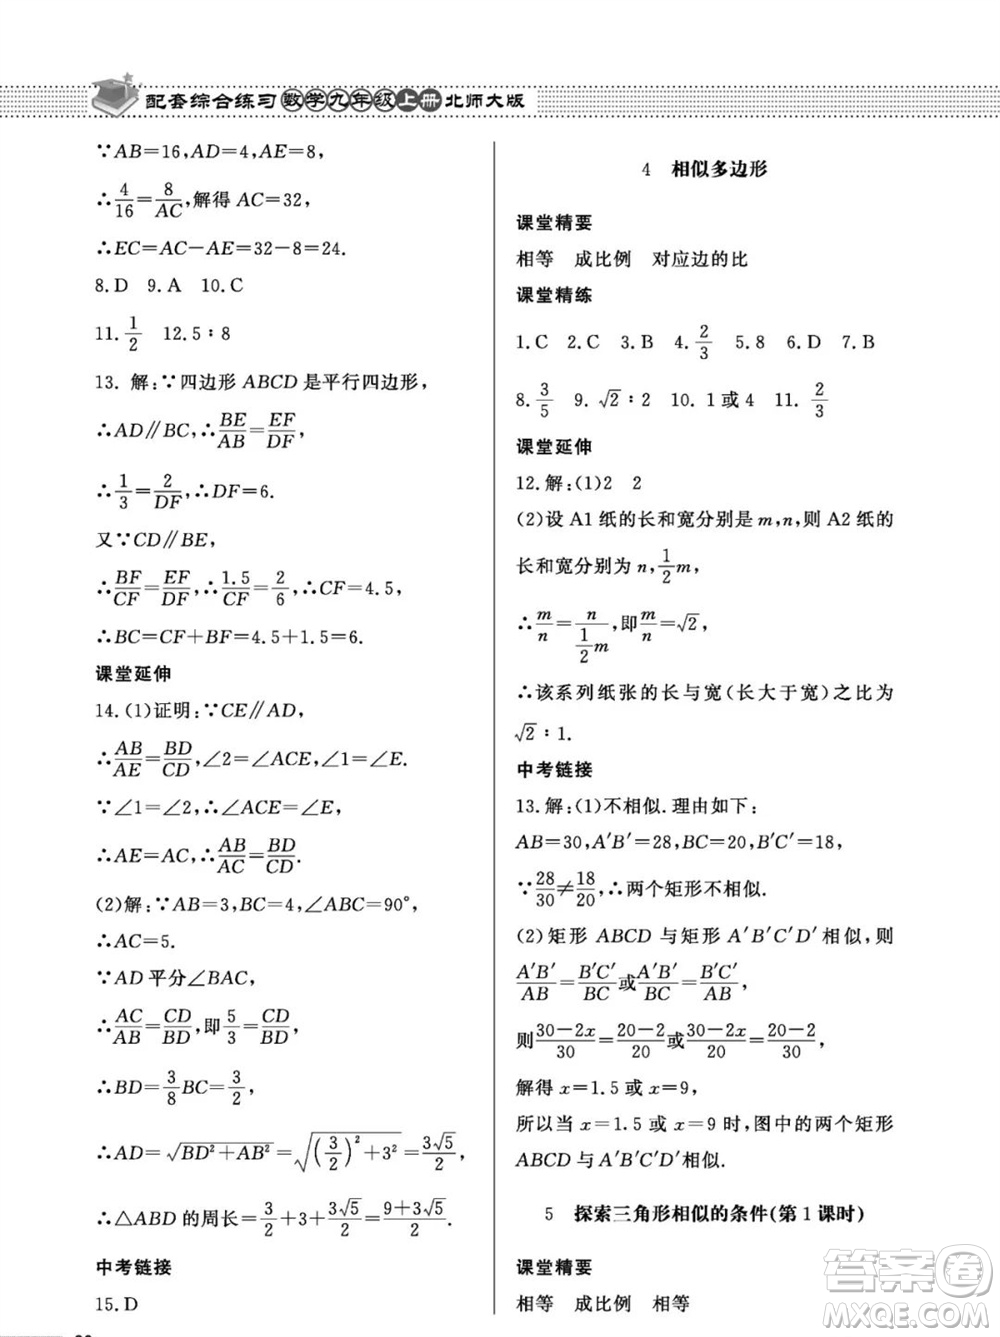 配套综合练习 数学九年级上册 北师大版
∵AB=16,AD=4,AE=8,
∴4/16=8/AC,解得 AC=32,
∴EC=AC−AE=32−8=24.
8. D 9. A 10. C
11. 1/2 12. 5∶8
13. 解:∵四边形 ABCD 是平行四边形,
∴AD∥BC,∴BE/AB=EF/DF,
∴1/3=2/DF,∴DF=6.
又∵CD∥BE,
∴BF/CF=EF/DF,∴1.5/CF=2/6,∴CF=4.5,
∴BC=CF+BF=4.5+1.5=6.
课堂延伸
14. (1)证明:∵CE∥AD,
∴AB/AE=BD/CD,∠2=∠ACE,∠1=∠E.
∵∠1=∠2,∴∠ACE=∠E,
∴AE=AC,∴AB/AC=BD/CD.
(2)解:∵AB=3,BC=4,∠ABC=90°,
∴AC=5.
∵AD 平分∠BAC,
∴AC/AB=CD/BD,即5/3=CD/BD,
∴BD=3/8BC=3/2,
∴AD=√(BD²+AB²)=√((3/2)²+3²)=3√5/2,
∴△ABD 的周长=3/2+3+3√5/2=(9+3√5)/2.
中考链接
15. D
4 相似多边形
课堂精要
相等 成比例 对应边的比
课堂精练
1. C 2. C 3. C 4. 2/3 5. 8 6. D 7. B
8. 3/5 9. √2∶2 10. 1 或 4 11. 2/3
课堂延伸
12. 解:(1)2 2
(2)设 A1 纸的长和宽分别是 m,n,则 A2 纸的
长和宽分别为 n,1/2m,
∴m/n=n/(1/2m),即m/n=√2,
∴该系列纸张的长与宽(长大于宽)之比为
√2∶1.
中考链接
13. 解:(1)不相似.理由如下:
AB=30,A′B′=28,BC=20,B′C′=18,
∵28/30≠18/20,∴两个矩形不相似.
(2)矩形 ABCD 与矩形 A′B′C′D′相似,则
A′B′/AB=B′C′/BC或A′B′/BC=B′C′/AB,
则(30−2x)/30=(20−2)/20或(30−2x)/20=(20−2)/30,
解得 x=1.5 或 x=9,
所以当 x=1.5 或 x=9 时,图中的两个矩形
ABCD 与A′B′C′D′相似.
5 探索三角形相似的条件(第 1 课时)
课堂精要
相等 成比例 相等
答案圈
MXQE.COM